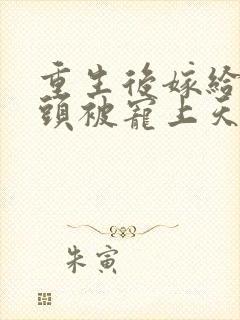 重生後嫁給
頭被寵上天
朱寅